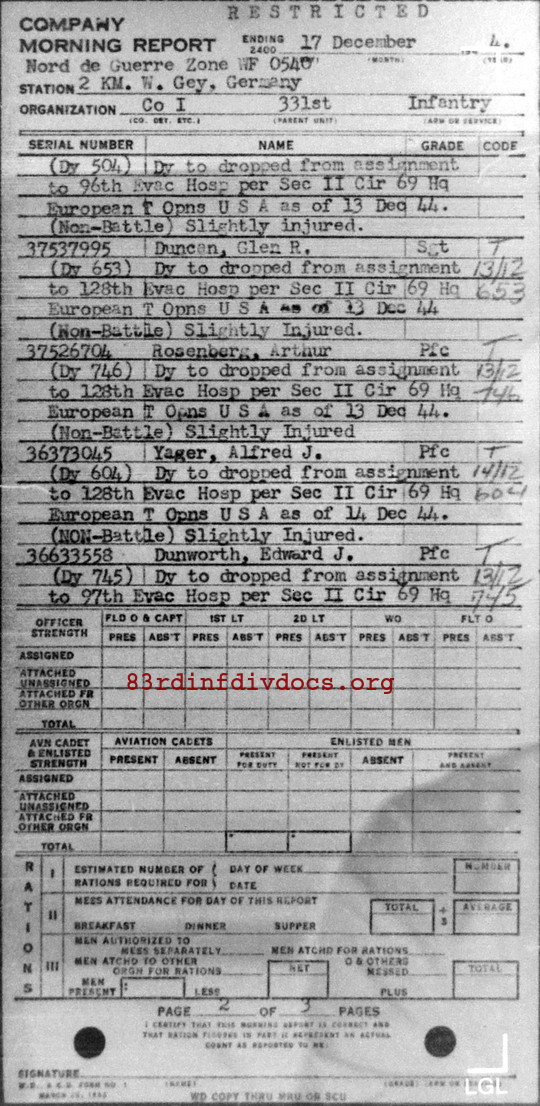 RESTRICTED
COMPANY
MORNING REPORT ENDING 2400 17 December 4.
(MONTH) (YEAR)
Nord de Guerre Zone WF 0540
STATION 2 KM. W. Gey, Germany
ORGANIZATION Co I 331st Infantry
(CO. DET. ETC.) (PARENT UNIT) (ARM OR SERVICE)
SERIAL NUMBER NAME GRADE CODE
(Dy 504) Dy to dropped from assignment
to 96th Evac Hosp per Sec II Cir 69 Hq
European T Opns U S A as of 13 Dec 44.
(Non-Battle) Slightly injured.
37537995 Duncan, Glen R. Sgt T
(Dy 653) Dy to dropped from assignment 13/12
to 128th Evac Hosp per Sec II Cir 69 Hq 653
European T Opns U S A as of 13 Dec 44
(Non-Battle) Slightly Injured.
37526704 Rosenberg, Arthur Pfc T
(Dy 746) Dy to dropped from assignment 13/12
to 128th Evac Hosp per Sec II Cir 69 Hq 746
European T Opns U S A as of 13 Dec 44.
(Non-Battle) Slightly Injured
36373045 Yager, Alfred J. Pfc T
(Dy 604) Dy to dropped from assignment 14/12
to 128th Evac Hosp per Sec II Cir 69 Hq 604
European T Opns U S A as of 14 Dec 44.
(NON-Battle) Slightly Injured.
36633558 Dunworth, Edward J. Pfc T
(Dy 745) Dy to dropped from assignment 13/12
to 97th Evac Hosp per Sec II Cir 69 Hq 745
OFFICER STRENGTH FLD O & CAPT 1ST LT 2D LT WO FLT O
PRES ABS'T PRES ABS'T PRES ABS'T PRES ABS'T PRES ABS'T
ASSIGNED
ATTACHED UNASSIGNED
83rdinfdivdocs.org
ATTACHED FR OTHER ORGN
TOTAL
AVN CADET & ENLISTED STRENGTH AVIATION CADETS ENLISTED MEN
PRESENT ABSENT PRESENT FOR DUTY PRESENT NOT FOR DY ABSENT PRESENT AND ABSENT
ASSIGNED
ATTACHED UNASSIGNED
ATTACHED FR OTHER ORGN
TOTAL
RATIONS
I ESTIMATED NUMBER OF RATIONS REQUIRED FOR DAY OF WEEK DATE NUMBER
II MESS ATTENDANCE FOR DAY OF THIS REPORT TOTAL ÷ 3 AVERAGE
BREAKFAST DINNER SUPPER
III MEN AUTHORIZED TO MESS SEPARATELY MEN ATCHD FOR RATIONS
MEN ATCHD TO OTHER ORGN FOR RATIONS NET O & OTHERS MESSED TOTAL
MEN PRESENT LESS PLUS
PAGE 2 OF 3 PAGES
I CERTIFY THAT THIS MORNING REPORT IS CORRECT AND
THAT RATION FIGURES IN PART II REPRESENT AN ACTUAL
COUNT AS REPORTED TO ME.
SIGNATURE
W.D., A.G.O. FORM NO. 1 (NAME) (GRADE)
WD COPY THRU MRU OR SCU
LGL